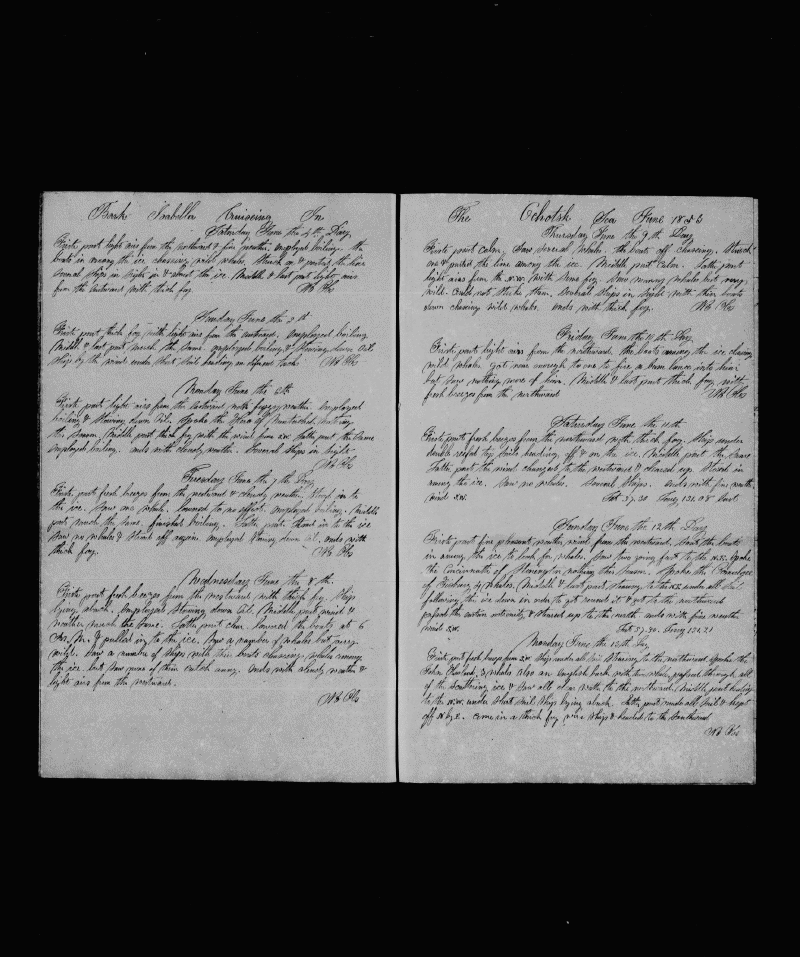 Bark Isabella Cruiseing In
Saturday June the 4th Day
Firste part light airs from the Northward & fine weather. Employed boileing. the
boats in among the ice chaseing wild whales. Struck one & parted the line
Several Ships in Sight in & about the ice. Middle & last part light airs
from the Eastward with thick fog.
Sunday June the
Firste part thick fog with light airs from the Eastward. Employed boileing
Middle & last part much the same. Employed boileing & Stowing down Oil.
Ship by the wind under Short Sail heading on different tacks
Monday June the 6th
Firste part light airs from the Eastward with foggy weather. Employed
boileing & Stowing down Oil. Spoke the Hero of Nantucket nothing
this Season. Middle part thick fog with the wind from S.W. Latter part the Same
Employed boileing. ends with cloudy weather. Several Ships in Sight
Tuesday June the 7th Day
Firste part fresh breezes from the westward & cloudy weather. Stood in to
the ice. Saw one whale. lowered to no effect. Employed boileing. Middle
part much the Same. finished boileing. Latter part Stood in to the ice
Saw no whales & Stood off again. Employed Stowing down Oil. ends with
thick fog.
Wednesday June the 8th.
Firste part fresh breezes from the westward with thick fog. Ship
lying aback. Employed Stowing down Oil. Middle part wind &
weather much the Same. Latter part clear. lowered the boats at 6
A. M. & pulled in to the ice. Saw a number of whales but very
wild. Saw a number of Ships with their boats chaseing whales among
the ice but Saw none of them catch any. Ends with cloudy weather &
light airs from the westward.
The Ochotsk Sea June 1853
Thursday June the 9th Day
Firste part Calm. Saw several whales. the boats off chaseing. Struck
one & parted the line among the ice. Middle part Calm. Latter part
light airs from the N.W. with Some fog. Saw many whales but very
wild. Could not Strike them. Several Ships in Sight with their boats
down chaseing wild whales. Ends with thick fog.
Friday June the 10th Day
Firste part light airs from the northward. the boats among the ice chaseing
wild whales. got near enough to one to fire a bomb lance into him
but Saw nothing more of him. Middle & last part thick fog with
fresh breezes from the northward
Saturday June the 11th
Firste part fresh breezes from the northward with thick fog. Ship under
double reefed top Sails heading off & on the ice. Middle part the Same
Latter part the wind changed to the westward & cleared up. Stood in
among the ice. Saw no whales. Several Ships. Ends with fine weather
wind S.W.
Lat 57.30 Long
Sunday June the 12th Day
Firste part fine pleasant weather wind from the westward. Sent the boats
in among the ice to look for whales. Saw two going fast to the N.E. Spoke
the Cincinnatti of Stonington nothing this Season. Spoke the
of whales. Middle & last part Steering to the N.E. under all Sail
following the ice down in order to get round it & get to the northward
passed the eastern extremity & Steered up to the north. ends with fine weather
wind S.W.
Lat 57.30. Long
Monday June the 13th Day
Firste part fresh breezes from S.W. Ship under all Sail Steering to the northward Spoke the
John 3 whales also an English bark with ten whales. passed through all
of the Scattering ice & Saw all clear water to the northward. Middle part
to the N.W. under Short Sail Ship lying aback. Latter part made all Sail & kept
off N by E. Came in a thick fog wore Ship & headed to the Southward